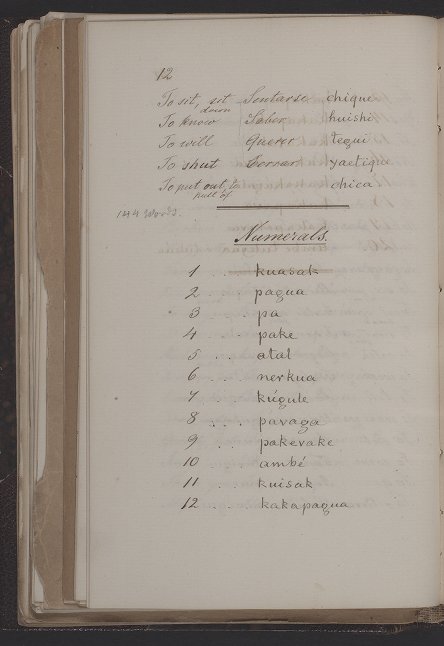 12
To sit, sit down Sentarse chique
To know Saber huishi
To will Querer tegui
To shut Cerrar yaetique
To put out, to pull of chica
144 words.
Numerals.
1 . . . kuasak
2 . . . pagua
3 . . . pa
4 . . . pake
5 . . . atal
6 . . . nerkua
7 . . . kúgule
8 . . . pavaga
9 . . . pakevake
10 . . . ambé
11 . . . kuisak
12 . . . kakapagua